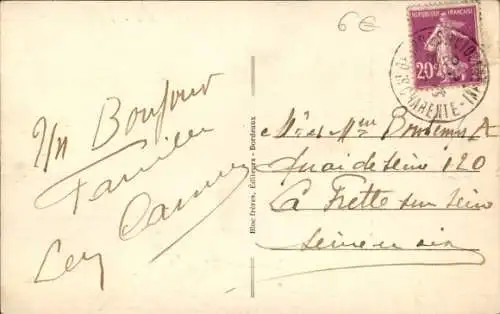 6€
REPUBLIQUE FRANÇAISE
20c
CHARENTE-INF
Un Bonjour
Famille
Bloc frères, Editeurs - Bordeaux
Mr et Mme
Quai de Seine 120
La Frette sur Seine
Seine et Oise